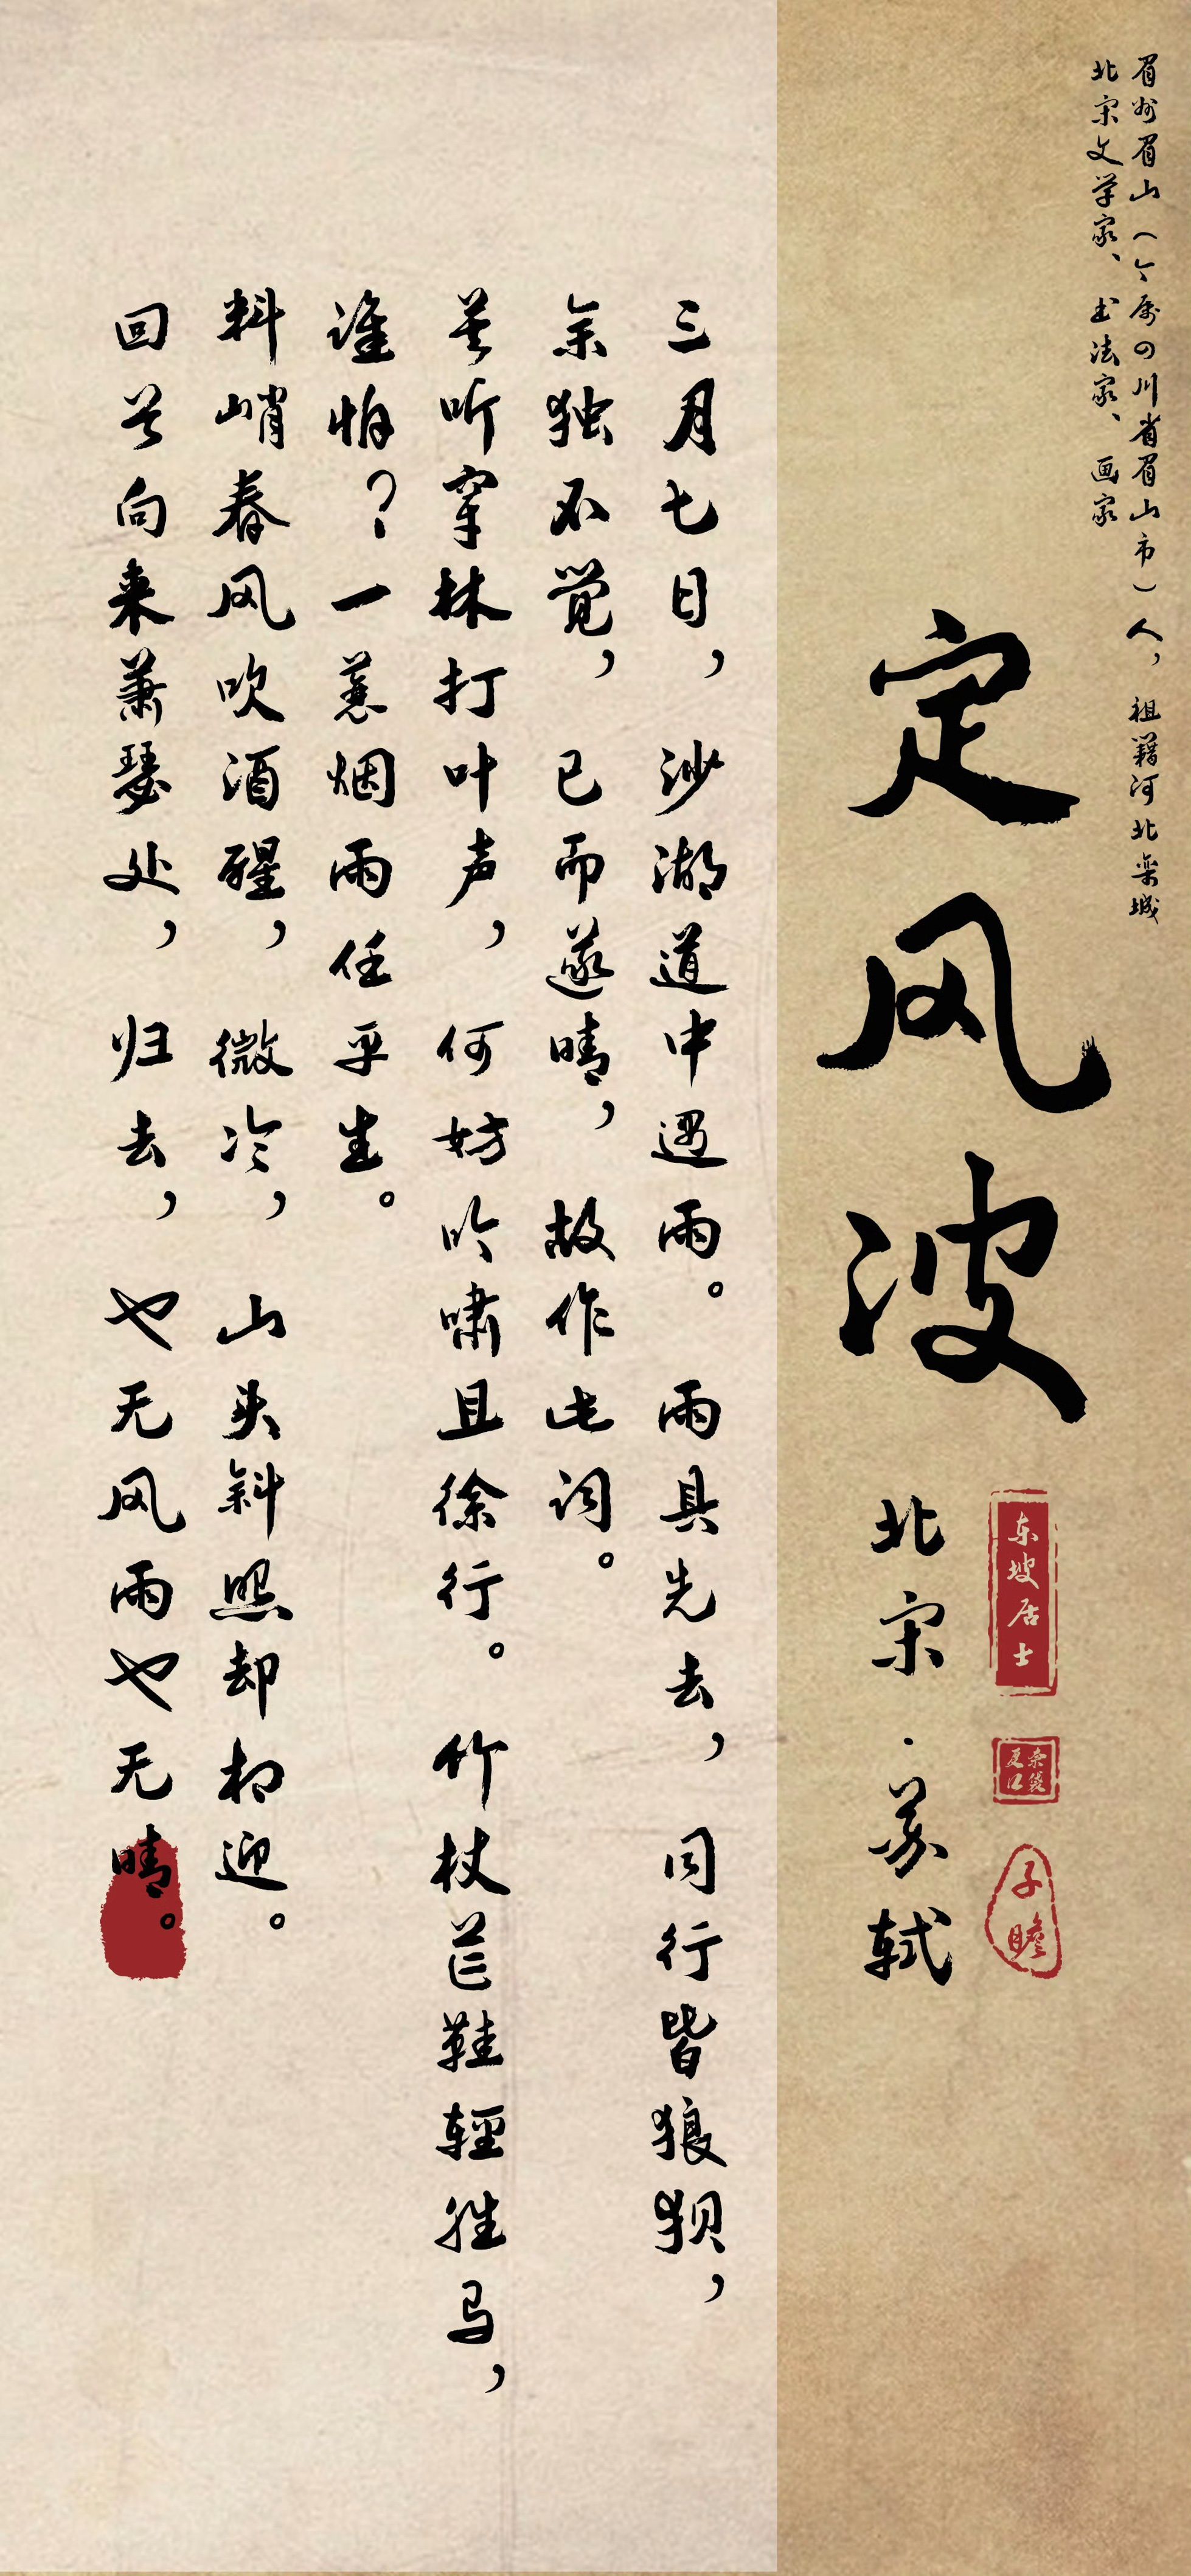 眉州眉山（今属四川省眉山市）人，祖籍河北栾城
北宋文学家、书法家、画家
定风波
东坡居士
子瞻
北宋·苏轼
三月七日，沙湖道中遇雨。雨具先去，同行皆狼狈，
余独不觉，已而遂晴，故作此词。
莫听穿林打叶声，何妨吟啸且徐行。竹杖芒鞋轻胜马，
谁怕？一蓑烟雨任平生。
料峭春风吹酒醒，微冷，山头斜照却相迎。
回首向来萧瑟处，归去，也无风雨也无晴。